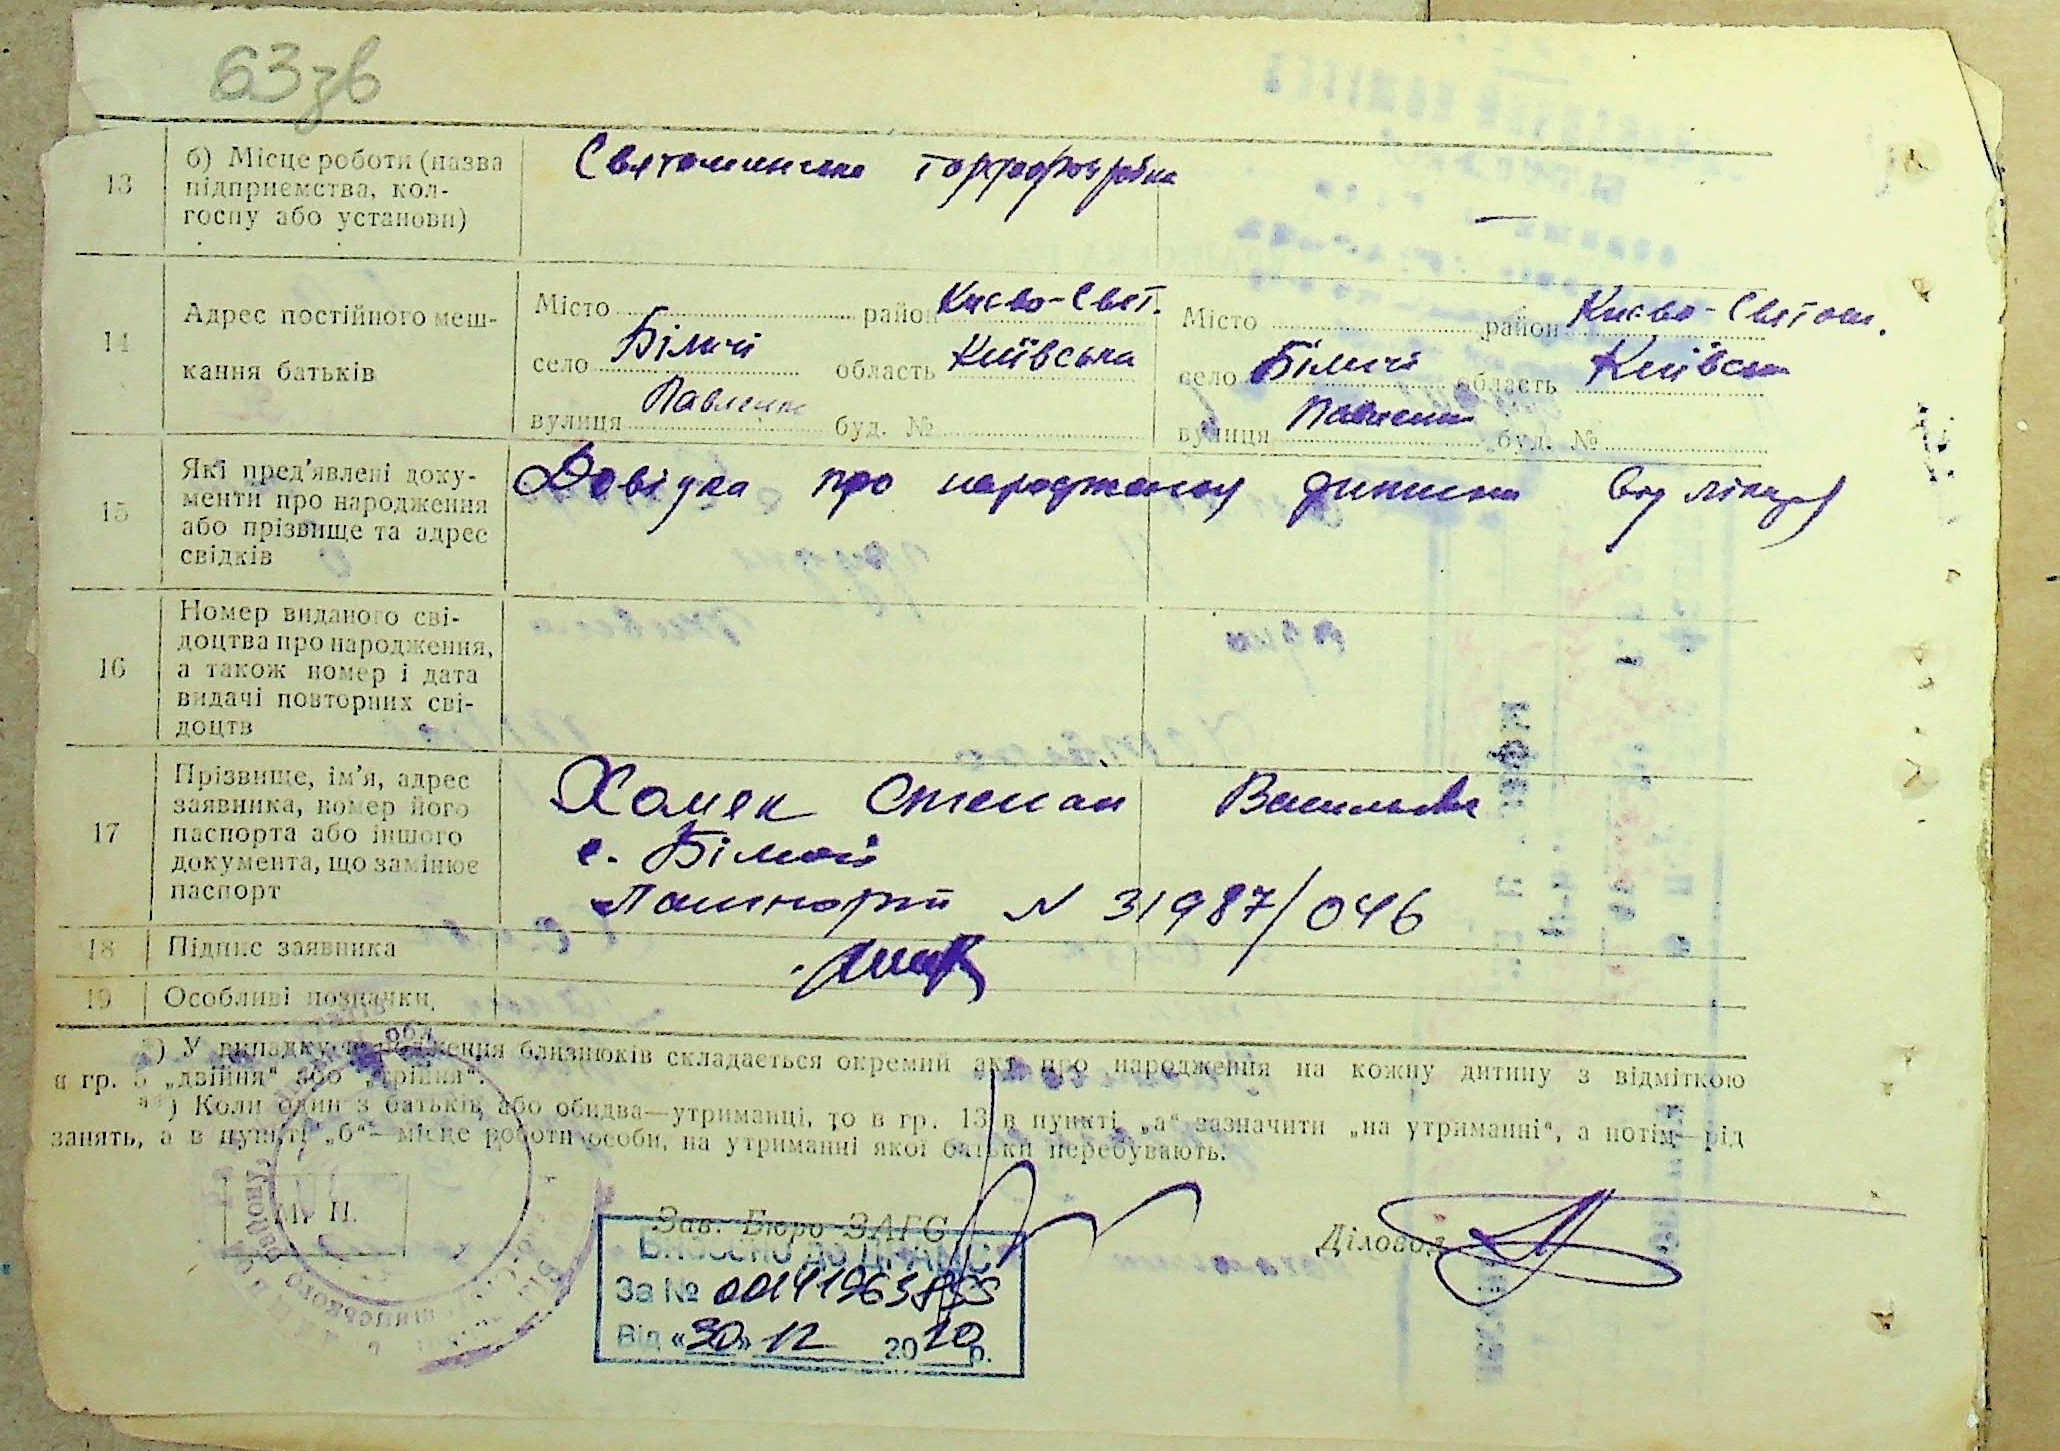 63зв
13
б) Місце роботи (назва
підприємства, кол-
госпу або установи)
Святошинська торфорозробка
—
14
Адрес постійного меш-
кання батьків
Місто район Києво-Свят.
село Біличі область Київська
вулиця Павленк буд. №
Місто район Києво-Святош.
село Біличі область Київськ
вулиця буд. №
15
Які пред'явлені доку-
менти про народження
або прізвище та адрес
свідків
Довідка про народження дитини від лікаря
16
Номер виданого сві-
доцтва про народження,
а також номер і дата
видачі повторних сві-
доцтв
17
Прізвище, ім'я, адрес
заявника, номер його
паспорта або іншого
документа, що замінює
паспорт
Хомек Степан Васильович
с. Біличі
Пашпорт N 31987/046
18
Підпис заявника
19
Особливі позначки
*) У випадку народження близнюків складається окремий акт про народження на кожну дитину з відміткою
в гр. 5 „двійня“ або „трійня“.
**) Коли один з батьків або обидва—утриманці, то в гр. 13 в пункті „а“ зазначити „на утриманні“, а потім—рід
занять, а в пункті „б“—місце роботи особи, на утриманні якої батьки перебувають.
М. П.
Зав. Бюро ЗАГС
Діловод
Внесено до ДРАЦС
За №
Від «30» 12 2010 р.